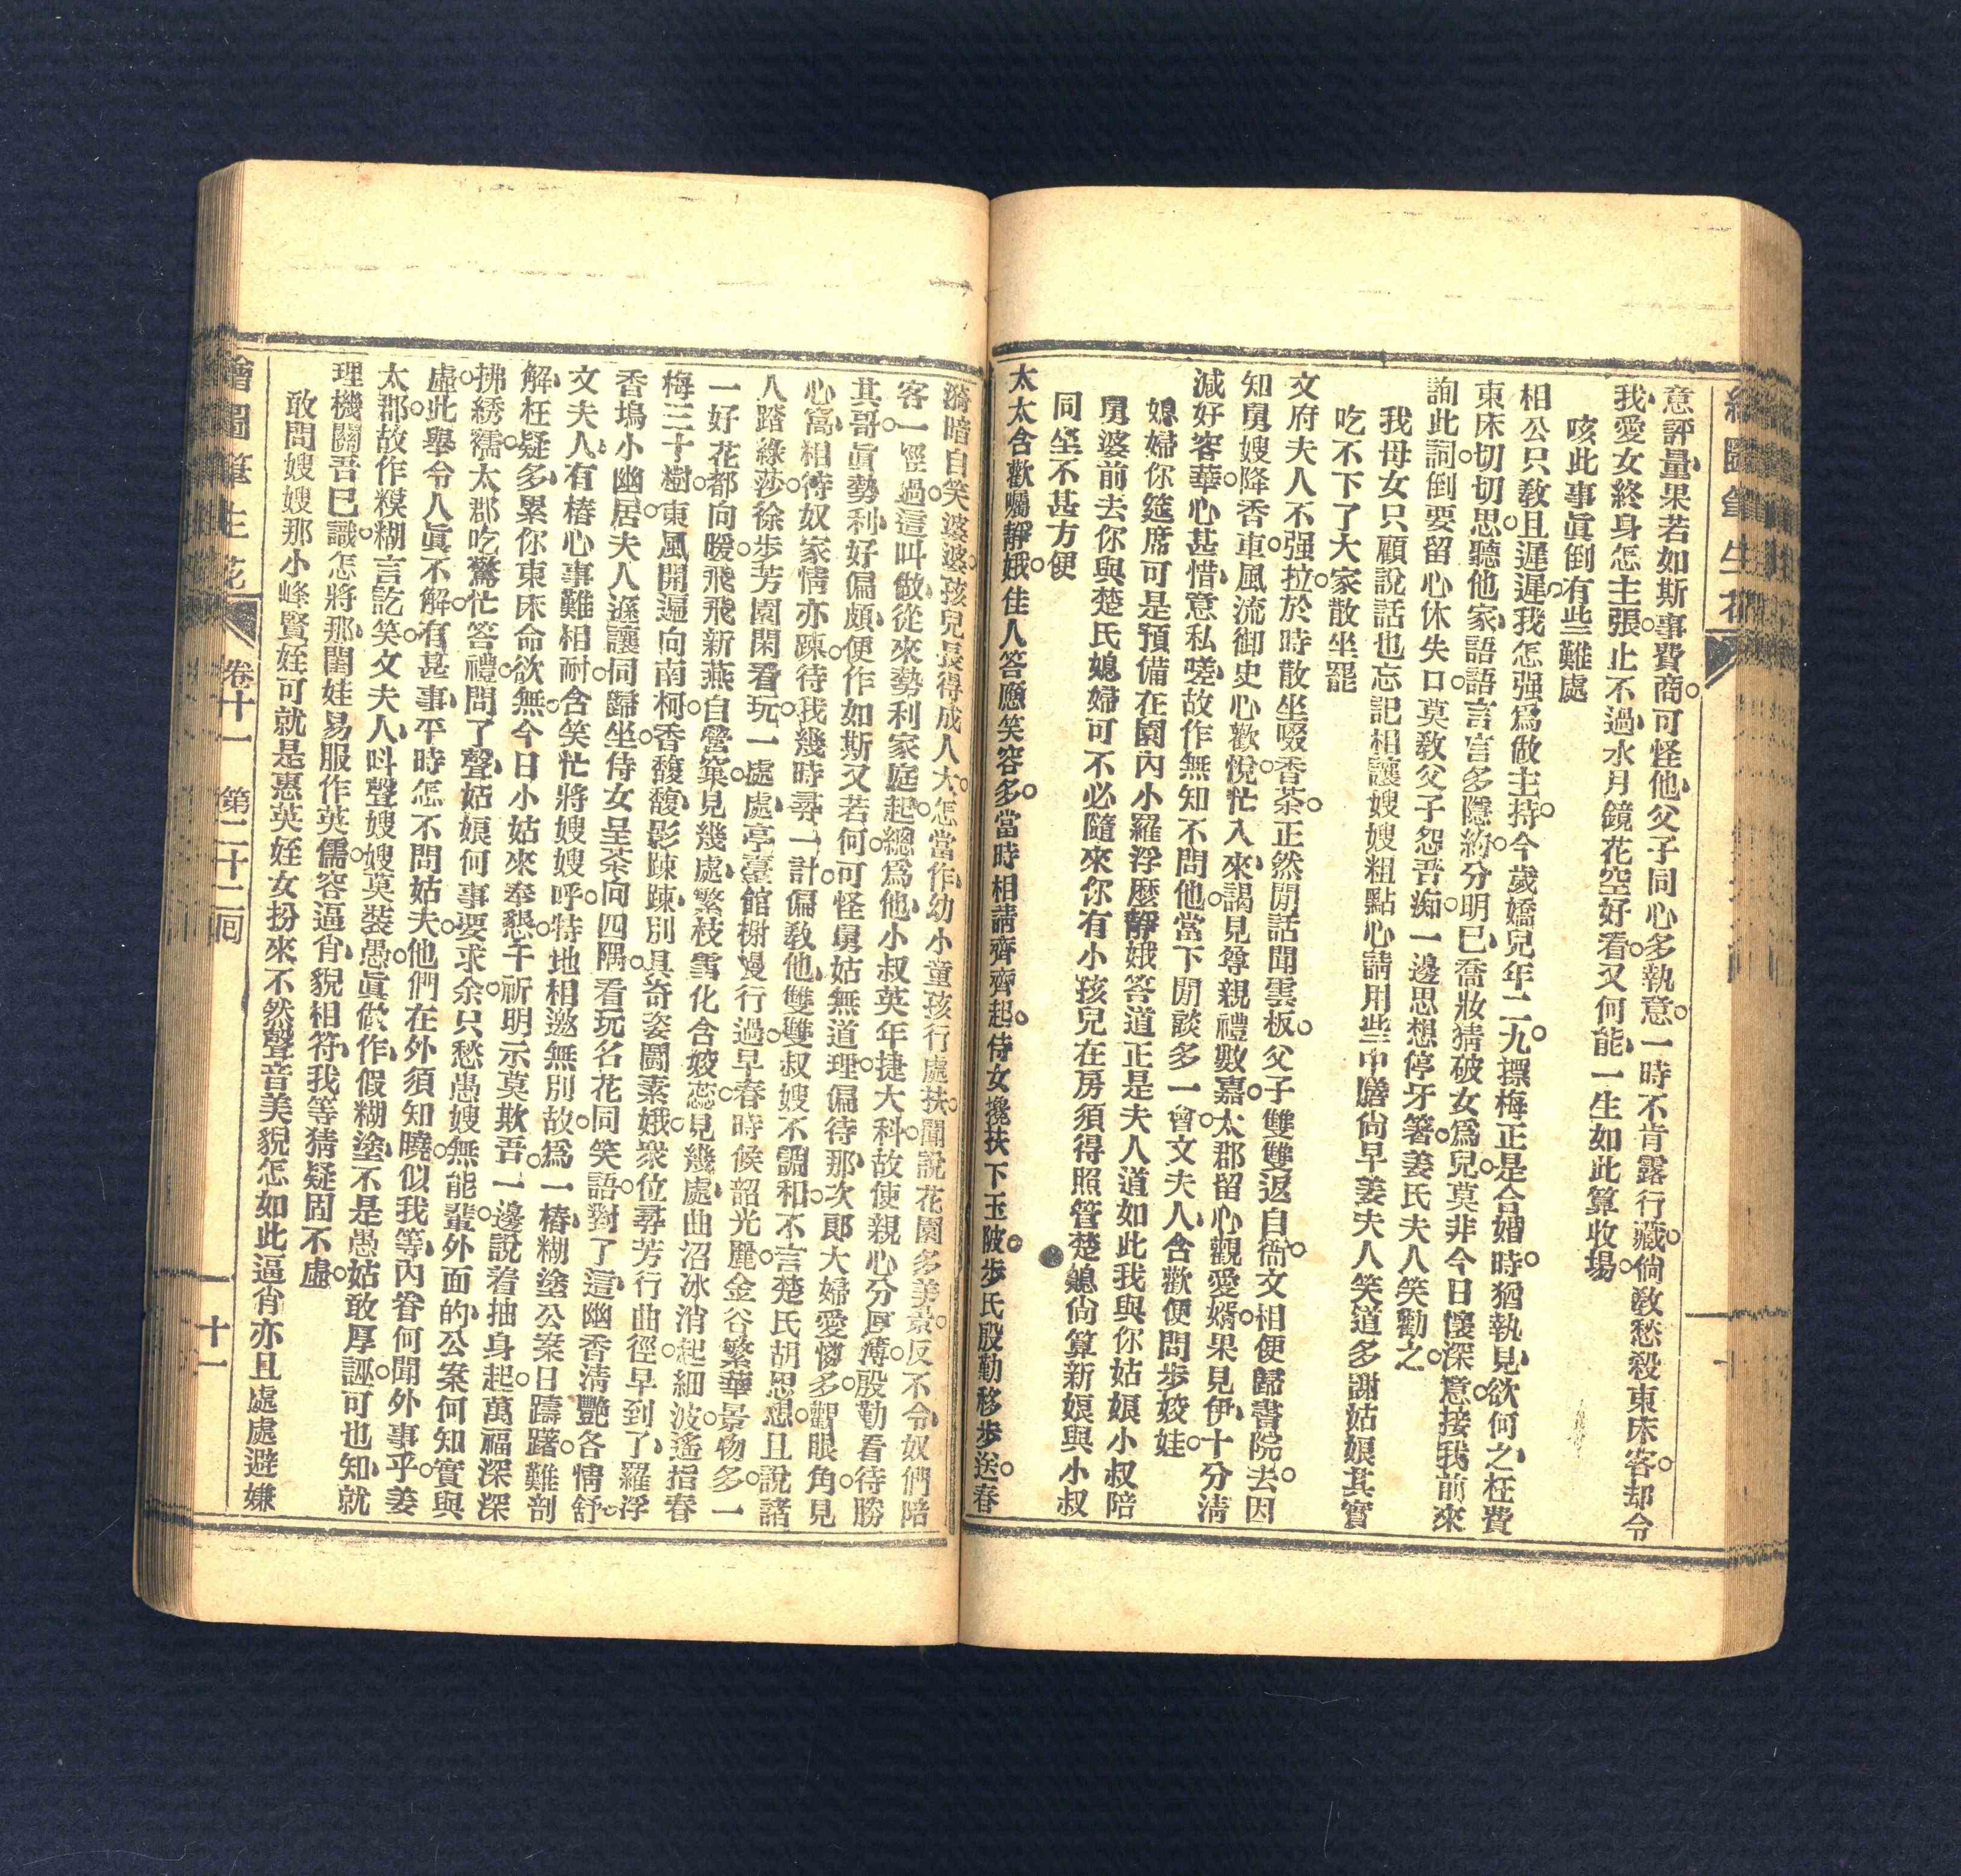 意評量果若如斯事費商。可怪他父子同心多執意。一時不肯露行藏。倘敎愁殺東床客。却令
我愛女終身怎主張。止不過水月鏡花空好看。又何能一生如此算收場。
咳此事眞倒有些難處
相公只敎且遲遲。我怎强爲做主持。今歲嬌兒年二九。摽梅正是合婚時。猶執見欲何之。枉費
東床切切思。聽他家語語言言多隱約。分明已喬妝猜破女爲兒。莫非今日懷深意。接我前來
詢此詞。倒要留心休失口。莫敎父子怨吾痴。一邊思想停牙箸。姜氏夫人笑勸之。
我母女只顧說話也忘記相讓嫂嫂粗點心請用些中膳尙早姜夫人笑道多謝姑娘其實
吃不下了大家散坐罷
文府夫人不强拉。於時散坐啜香茶。正然閒話聞雲板。父子雙雙返自衙。文相便歸書院去。因
知舅嫂降香車。風流御史心歡悅。忙入來謁見尊親禮數嘉。太郡留心觀愛婿。果見伊十分淸
減好容華。心甚惜意私嗟。故作無知不問他。當下閒談多一會。文夫人含歡便問步姣娃。
媳婦你筵席可是預備在園內小羅浮麼靜娥答道正是夫人道如此我與你姑娘小叔陪
舅婆前去你與楚氏媳婦可不必隨來你有小孩兒在房須得照管楚媳尙算新娘與小叔
同坐不甚方便
太太含歡囑靜娥。佳人答應笑容多。當時相請齊齊起。侍女攙扶下玉陂。步氏殷勤移步送。春
漪暗自笑婆婆。孩兒長得成人大。怎當作幼小童孩行處扶。聞說花園多美景。反不令奴們陪
客一經過。這叫做從來勢利家庭起。總爲他小叔英年捷大科。故使親心分厚薄。殷勤看待勝
其哥。眞勢利好偏頗。便作如斯又若何。可怪舅姑無道理。偏待那次郎大婦愛憐多。觀眼角見
心窩。相待奴家情亦疎。待我幾時尋一計。偏敎他雙雙叔嫂不調和。不言楚氏胡思想。且說諸
人踏綠莎。徐步芳園閑看玩。一處處亭臺館榭慢行過。早春時候韶光麗。金谷繁華景物多。一
一好花都向暖。飛飛新燕自營窠。見幾處繁枝雪化含姣蕊。見幾處曲沼冰消起細波。遙指春
梅三十樹。東風開遍向南柯。香馥馥影疎疎。別具奇姿鬭素娥。衆位尋芳行曲徑。早到了羅浮
香塢小幽居。夫人遜讓同歸坐。侍女呈茶向四隅。看玩名花同笑語。對了這幽香淸艷各情舒。
文夫人有椿心事難相耐。含笑忙將嫂嫂呼。特地相邀無別故。爲一椿糊塗公案日躊躇。難剖
解枉疑多。累你東床命欲無。今日小姑來奉懇。午祈明示莫欺吾。一邊說着抽身起。萬福深深
拂綉襦。太郡吃驚忙答禮。問了聲姑娘何事要求余。只愁愚嫂無能輩。外面的公案何知實與
虛。此舉令人眞不解。有甚事平時怎不問姑夫。他們在外須知曉。似我等內眷何聞外事乎。姜
太郡故作糢糊言訖笑。文夫人叫聲嫂嫂莫裝愚。眞做作假糊塗。不是愚姑敢厚誣。可也知就
理機關吾已識。怎將那閨娃易服作英儒。容逼肖貌相符。我等猜疑固不虛。
敢問嫂嫂那小峰賢姪可就是惠英姪女扮來不然聲音美貌怎如此逼肖亦且處處避嫌
繪圖筆生花
卷十一 第二十二回
十一